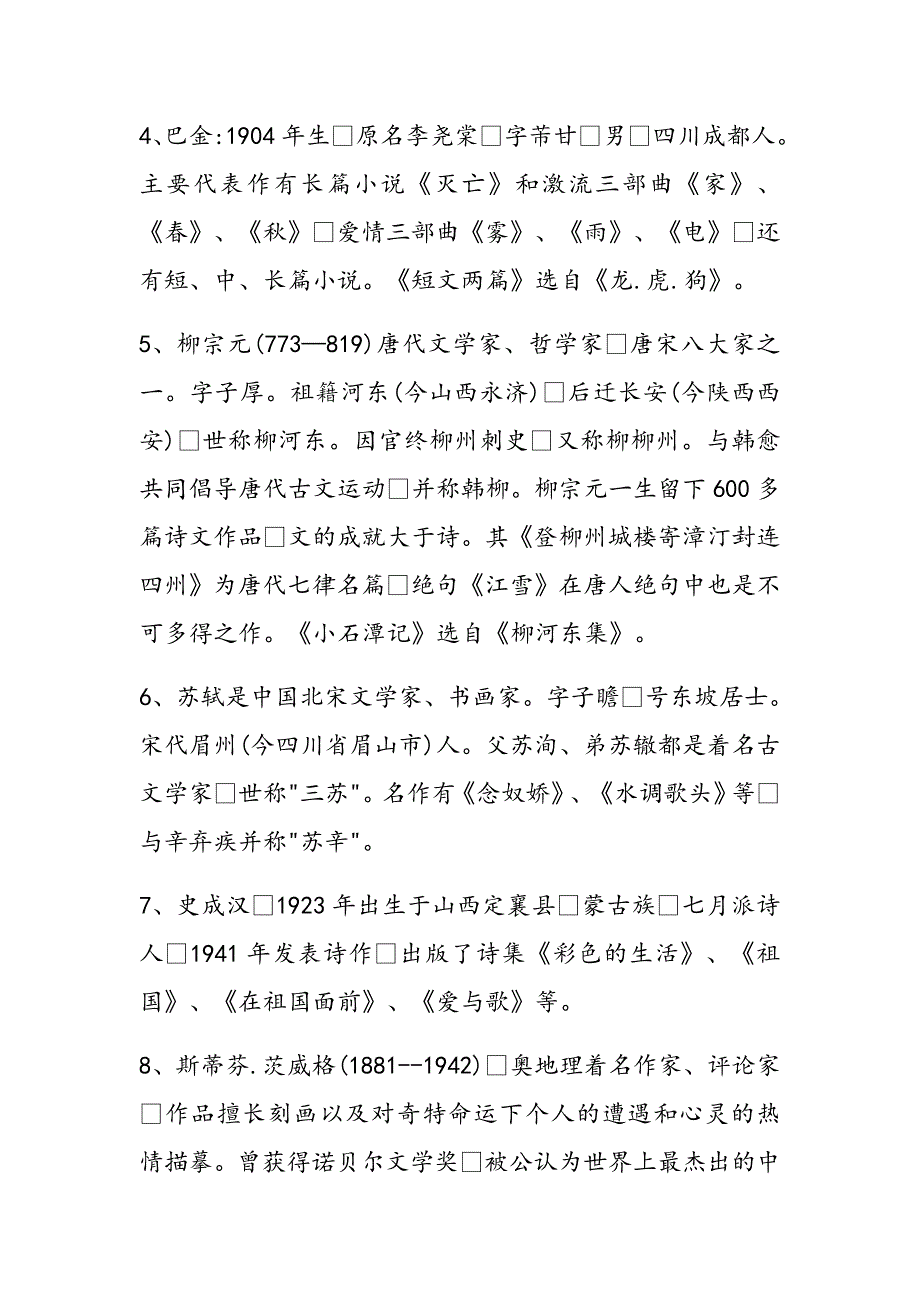 4、巴金:1904年生□原名李尧棠□字芾甘□男□四川成都人。
主要代表作有长篇小说《灭亡》和激流三部曲《家》、
《春》、《秋》□爱情三部曲《雾》、《雨》、《电》□还
有短、中、长篇小说。《短文两篇》选自《龙.虎.狗》。
5、柳宗元(773—819)唐代文学家、哲学家□唐宋八大家之
一。字子厚。祖籍河东(今山西永济)□后迁长安(今陕西西
安)□世称柳河东。因官终柳州刺史□又称柳柳州。与韩愈
共同倡导唐代古文运动□并称韩柳。柳宗元一生留下600多
篇诗文作品□文的成就大于诗。其《登柳州城楼寄漳汀封连
四州》为唐代七律名篇□绝句《江雪》在唐人绝句中也是不
可多得之作。《小石潭记》选自《柳河东集》。
6、苏轼是中国北宋文学家、书画家。字子瞻□号东坡居士。
宋代眉州(今四川省眉山市)人。父苏洵、弟苏辙都是着名古
文学家□世称"三苏"。名作有《念奴娇》、《水调歌头》等□
与辛弃疾并称"苏辛"。
7、史成汉□1923年出生于山西定襄县□蒙古族□七月派诗
人□1941年发表诗作□出版了诗集《彩色的生活》、《祖
国》、《在祖国面前》、《爱与歌》等。
8、斯蒂芬.茨威格(1881--1942)□奥地理着名作家、评论家
□作品擅长刻画以及对奇特命运下个人的遭遇和心灵的热
情描摹。曾获得诺贝尔文学奖□被公认为世界上最杰出的中